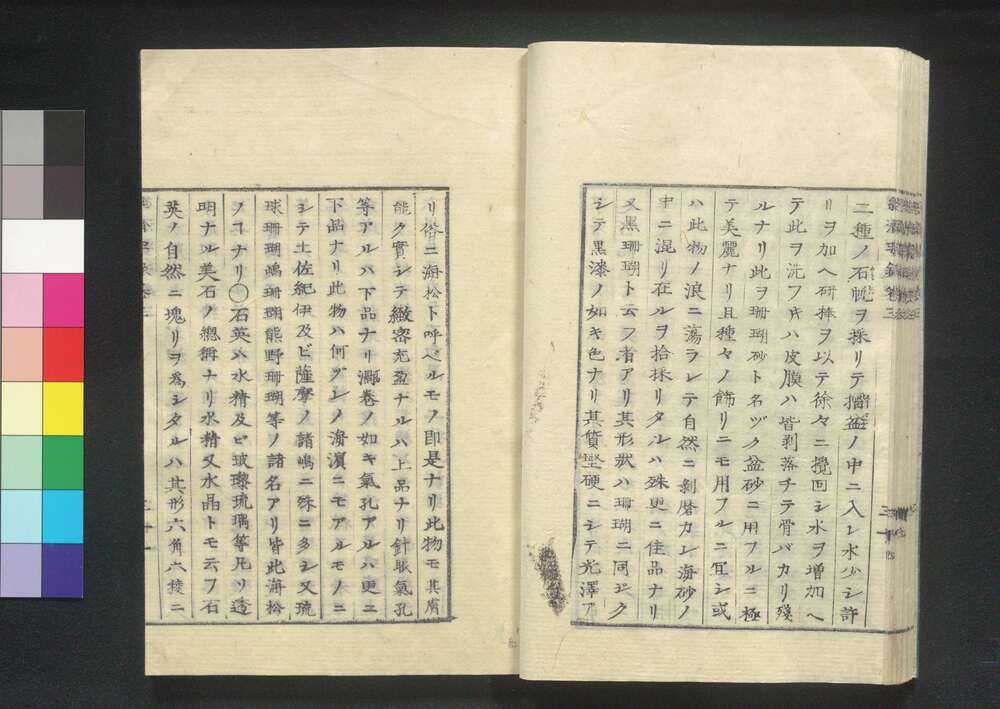 二種ノ石帆ヲ採リテ擂盆ノ中ニ入レ水少シ許
リヲ加ヘ研棒ヲ以テ徐々ニ攪回シ水ヲ増加ヘ
テ此ヲ洗フキハ皮膜ハ皆剥落チテ骨バカリ殘
ルナリ此ヲ珊瑚砂ト名ヅク盆砂ニ用フルニ極
テ美麗ナリ且種々ノ飾リニモ用フルニ冝シ或
ハ此物ノ浪ニ蕩ヲレテ自然ニ剝磨カレ海砂ノ
中ニ混リ在ルヲ拾採リタルハ殊更ニ佳品ナリ
又黒珊瑚ト云フ者アリ其形狀ハ珊瑚ニ同ジク
シテ黒漆ノ如キ色ナリ其質堅硬ニシテ光澤ア
リ俗ニ海松ト呼ベルモノ即是ナリ此物モ其膚
能ク實シテ緻密充盈ナルハ上品ナリ針眼氣孔
等アルハ下品ナリ渦卷ノ如キ氣孔アルハ更ニ
下品ナリ此物ハ何グレノ海濱ニモアルモノニ
シテ土佐紀伊及ビ薩摩ノ諸嶋ニ殊ニ多シ又琉
球珊瑚嶋珊瑚熊野珊瑚等ノ諸名アリ皆此海松
ノヿナリ〇石英ハ水精及ビ玻瓈琉璃等凡リ透
明ナル美石ノ總稱ナリ水精又水晶トモ云フ石
英ノ自然ニ塊リヲ爲シタルハ其形六角六稜ニ